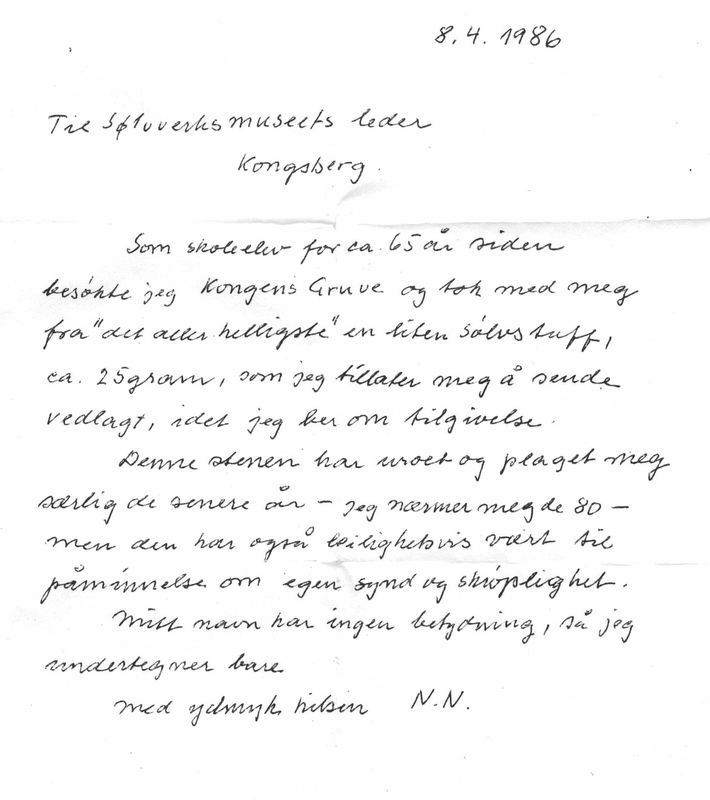 8.4.1986
Til Sølvverksmuseets leder
Kongsberg.
Som skoleelev for ca. 65 år siden
besøkte jeg Kongens Gruve og tok med meg
fra "det aller helligste" en liten sølvstuff,
ca. 25 gram, som jeg tillater meg å sende
vedlagt, idet jeg ber om tilgivelse.
Denne stenen har uroet og plaget meg
særlig de senere år – jeg nærmer meg de 80 –
men den har også leilighetsvis vært til
påminnelse om egen synd og skrøplighet.
Mitt navn har ingen betydning, så jeg
undertegner bare
med ydmyk hilsen N.N.